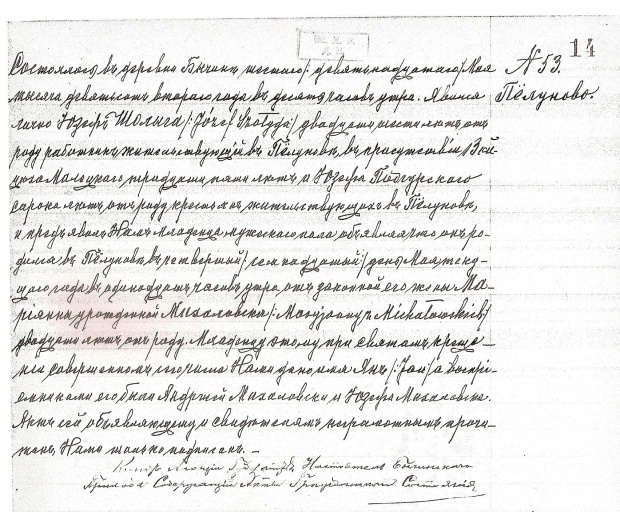 14
N 53.
Пёлуново.
Состоялось въ деревни Бычкин шестаго /: девятнадцатаго/ Мая
тысяча девятьсотъ втораго года въ десять часовъ утра. Явился
лично Іозефъ Шолыга /: Józef Szołyga/ двадцати шести лѣтъ отъ
роду работникъ жительствующій въ Пёлуновѣ, въ присутствіи
Малецкаго тридцати пяти лѣтъ и Іозефа Подгурскаго
сорока лѣтъ отъ роду крестьянъ жительствующихъ въ Пёлуновѣ,
и предъявилъ Намъ младенца мужескаго пола объявляя что онъ ро-
дился въ Пёлуновѣ въ четвертый / семнадцатый / день Мая теку-
щаго года въ одинадцать часовъ утра, отъ законной его жены Ма-
ріянны урожденной Михаловской /: Maryjanny z Michałowskich/
двадцати лѣтъ отъ роду. Младенцу этому при святомъ креще-
ніи совершенномъ сего числа Нами дано имя Янъ /: Jan/ а воспрі-
емниками его были Андржей Михаловски и Іозефа Михаловска.
Актъ сей объявляющему и свидѣтелямъ неграмотнымъ прочи-
танъ, Нами только подписанъ. –
Настоятель
Прихода Содержащій Акты Гражданскаго Состоянія